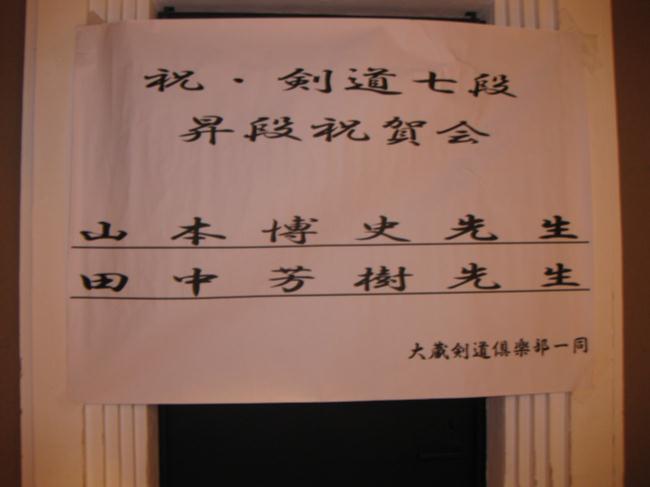 祝・剣道七段
昇段祝賀会
山本博史先生
田中芳樹先生
大蔵剣道倶楽部一同